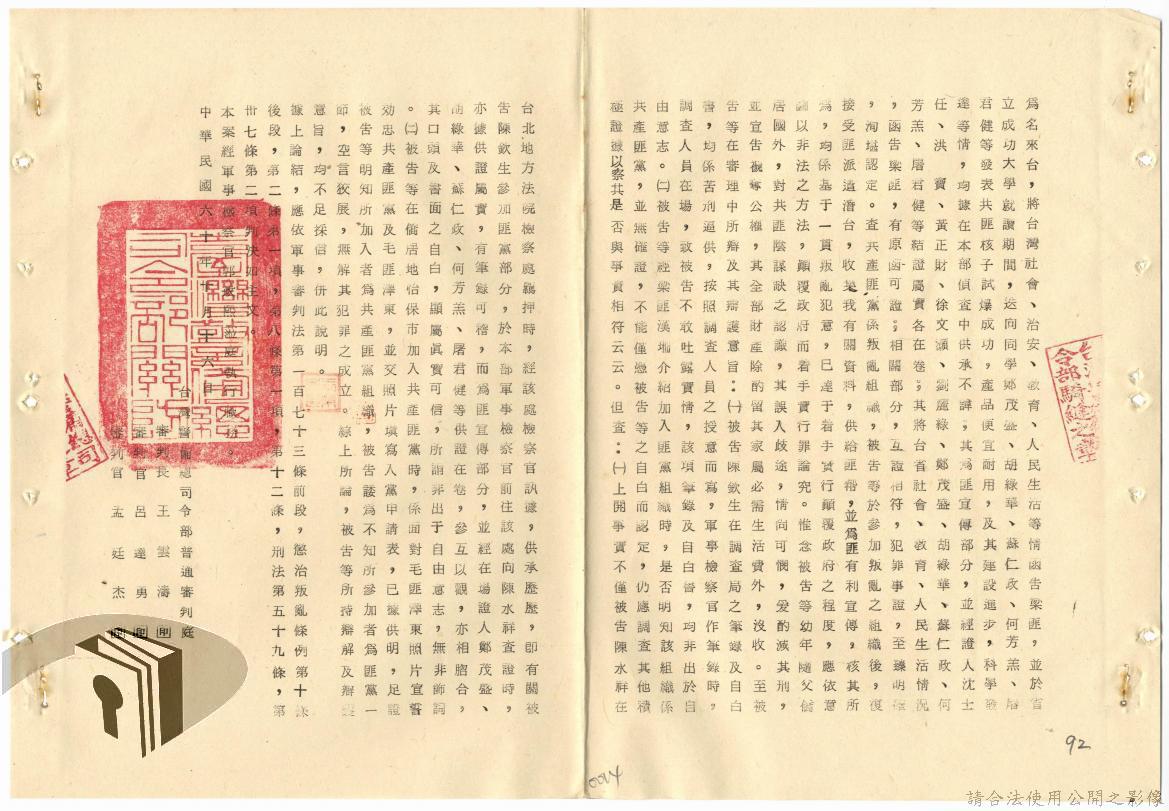 爲名來台，將台灣社會、治安、敎育、人民生活等情函吿梁匪，並於省
立成功大學就讀期間，迭向同學鄭茂盛、胡綠華、蘇仁政、何芳羔、屠
君健等發表共匪核子試爆成功，產品便宜耐用，及其建設進步，科學發
達等情，均據在本部偵查中供承不諱，其爲匪宣傳部分，並經證人沈士
任、洪 寶、黃正財、徐文灝、劉麗綠、鄭茂盛、胡綠華、蘇仁政、何
芳羔、屠君健等結證屬實各在卷，其將台省社會、敎育、人民生活情況
，函吿梁匪，有原函可證，相關部分，互證相符，犯罪事證，至臻明確
，洵堪認定。查共產匪黨係叛亂組織，被吿等於參加叛亂之組織後，復
接受匪派遣潛台，收集我有關資料，供給匪榗，並爲匪有利宣傳，核其所
爲，均係基于一貫叛亂犯意，已達于着手實行顚覆政府之程度，應依意
圖以非法之方法，顚覆政府而着手實行罪論究。惟念被吿等幼年隨父僑
居國外，對共匪陰謀缺乏認識，其誤入歧途，情尙可憫，爰酌減其刑，
並宣吿褫奪公權，其全部財產除酌留其家屬必需生活費外，沒收。至被
吿等在審理中所辯及其辯護意旨：㈠被吿陳欽生在調查局之筆錄及自白
書，均係苦刑逼供，按照調查人員之授意而寫，軍事檢察官作筆錄時，
調查人員在場，致被吿不敢吐露實情，該項筆錄及自白書，均非出於自
由意志。㈡被吿等經梁匪漢珈介紹加入匪黨組織時，是否明知該組織係
共產匪黨，並無確證，不能僅憑被吿等之自白而認定，仍應調查其他積
極證據以察其是否與事實相符云云。但查：㈠上開事實不僅被吿陳水祥在
台北地方法院檢察處羈押時，經該處檢察官訊據，供承歷歷，即有關被
吿陳欽生參加匪黨部分，於本部軍事檢察官前往該處向陳水祥查證時，
亦據供證屬實，有筆錄可稽，而爲匪宣傳部分，並經在場證人鄭茂盛、
胡綠華、蘇仁政、何芳羔、屠君健等供證在卷，參互以觀，亦相脗合，
其口頭及書面之自白，顯屬眞實可信，所謂非出于自由意志，無非飾詞
。㈡被吿等在僑居地怡保市加入共產匪黨時，係面對毛匪澤東照片宣誓
効忠共產匪黨及毛匪澤東，並交照片塡寫入黨申請表，已據供明，足證
被吿等明知所加入者爲共產匪黨組織，被吿諉爲不知所參加者爲匪黨一
節，空言狡展，無解其犯罪之成立。綜上所論，被吿等所持辯解及辯護
意旨，均不足採信，併此說明。
據上論結，應依軍事審判法第一百七十三條前段，懲治叛亂條例第十條
後段，第二條第一項，第八條第一項，第十二條，刑法第五十九條，第
卅七條第二項判決如主文。
本案經軍事檢察官郭
中華民國六十年十月十六日
台灣警備總司令部普通審判庭
審判長 王 雲 濤
審判官 呂 達 勇
審判官 孟 廷 杰
92
0094
請合法使用公開之影像